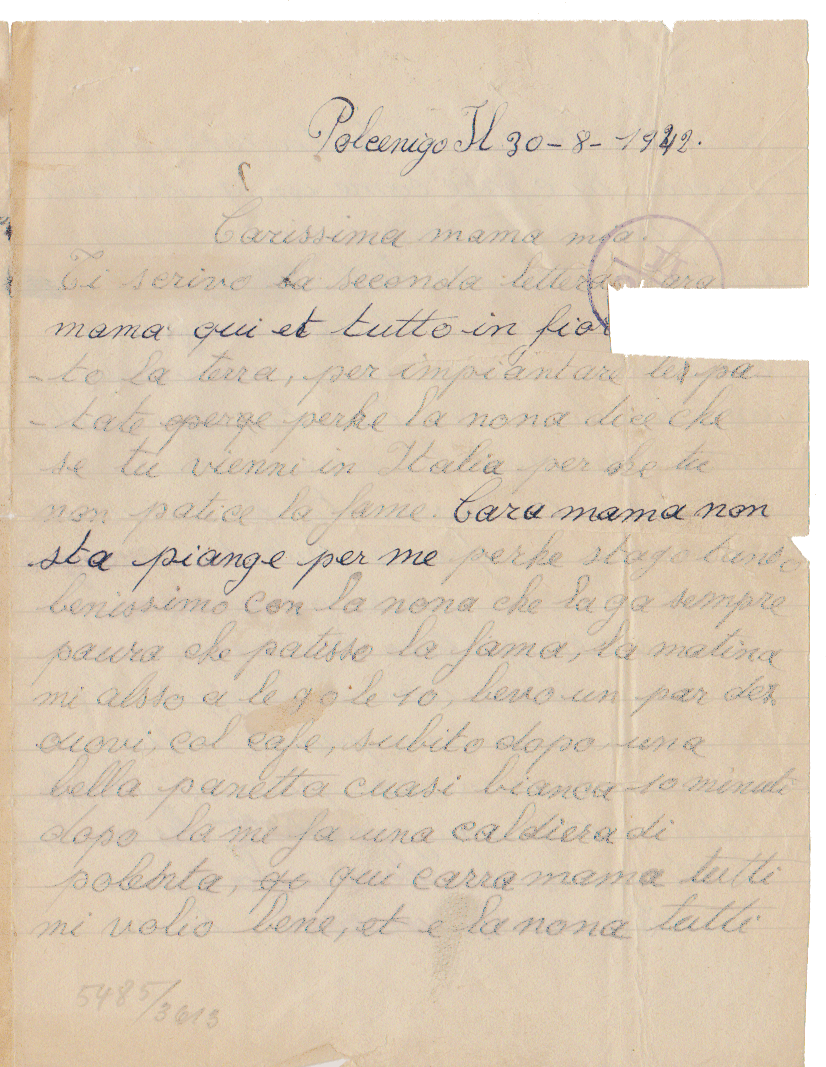 Polcenigo Il 30-8-1942.
Carissima mama mia.
Ti scrivo la seconda lettera ara
mama qui et tutto in fior
-to la terra, per impiantare le pa-
-tate perke la nona dice che
se tu vienni in Italia per che tu
non patice la fame. Cara mama non
sta piange per me perke stago
benissimo con la nona che la ga sempre
paura che patisso la fama, la matina
mi alsso a le 9 o le 10, bevo un par de
ouovi, col cafe, subito dopo una
bella panetta cuasi bianca 10 minuti
dopo la me fa una caldiera di
polenta, qui carra mama tutti
mi volio bene, et e la nona tutti
5485/3613